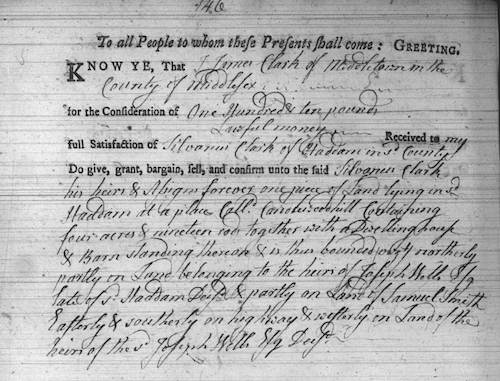 146
To all People to whom these Presents shall come: GREETING.
KNOW YE, That I James Clark of Middletown in the
County of Middlesex
for the Consideration of One Hundred & ten pounds
Lawful money Received to my
full Satisfaction of Silvanus Clark of Haddam in sd County
Do give, grant, bargain, sell, and confirm unto the said Silvanus Clark
his heirs & Assigns forever one piece of Land lying in sd
Haddam at a place Calld. Containing
four acres & nineteen rods together with a Dwelling house
& Barn standing thereon & is thus bounded northerly
partly on Land belonging to the heirs of Joseph Wells Esq
late of sd Haddam Decsd & partly on Land of Samuel Smith
Easterly & southerly on highway & westerly on Land of the
heirs of the sd Joseph Wells Esq Decsd